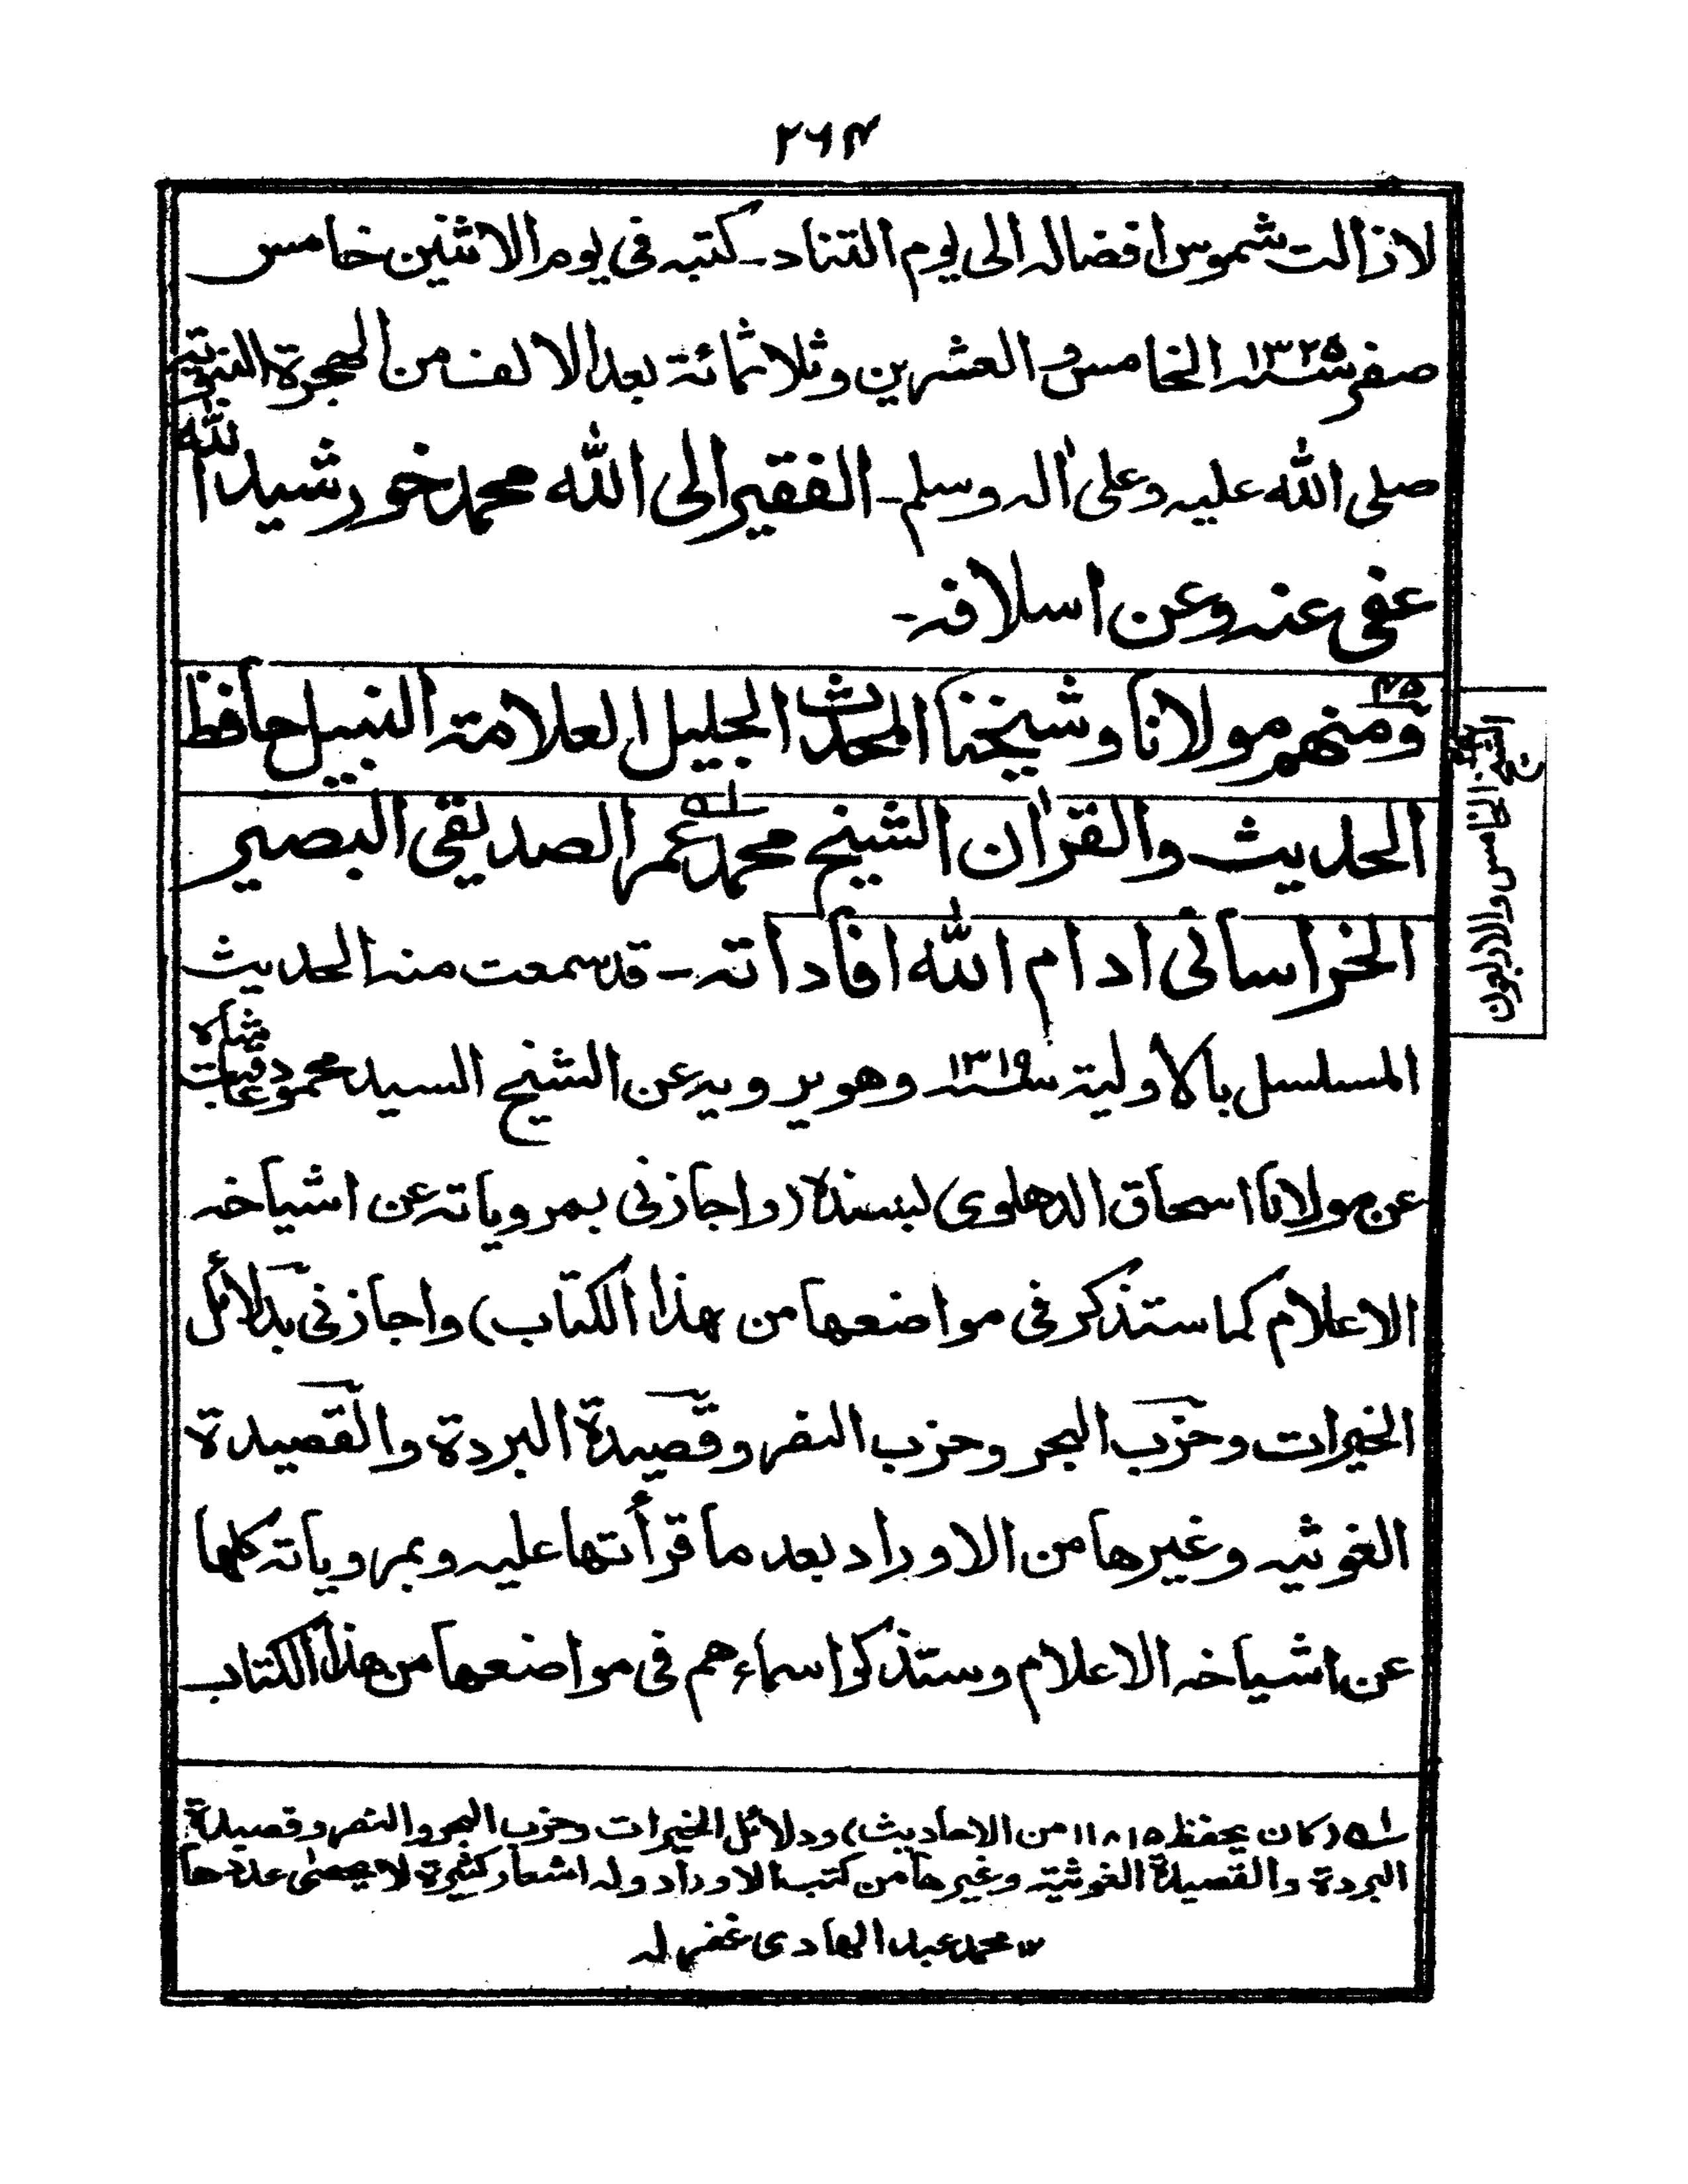 ۲۶۴
لازالت شموس افضاله الی یوم التناد۔ کتبه فی یوم الاثنین خامس
صفر سنہ ۱۳۲۵ الخامس والعشرین وثلاثمائة بعد الالف من الهجرة النبویة
صلی الله علیه وعلی اٰله وسلم۔ الفقیر الی الله محمد خورشید الله
عفی عنه وعن اسلافه۔
۴۵
ومنهم مولانا وشیخنا المحدث الجلیل العلامة النبیل حافظ
الحدیث والقراٰن الشیخ محمد عمر الصدیقی البصیر
الخراسانی ادام الله افاداته۔ قد سمعت منه الحدیث
المسلسل بالاولیة سنہ ۱۳۱۹ وهو یرویه عن الشیخ السید محمود
عن مولانا اسحاق الدهلوی بسنده (واجازنی بمرویاته عن اشیاخه
الاعلام کما ستذکر فی مواضعها من هذا الکتاب) واجازنی بدلائل
الخیرات وحزب البحر وحزب النصر وقصیدة البردة والقصیدة
الغوثیه وغیرها من الاوراد بعد ما قرأتها علیه وبمرویاته کلها
عن اشیاخه الاعلام وستذکر اسماءهم فی مواضعها من هذا الکتاب
الشیخ الخامس والاربعون
لہ (کان یحفظ ۱۱۸۱۵ من الاحادیث) ودلائل الخیرات وحزب البحر والنصر وقصیدة
البردة والقصیدة الغوثیة وغیرها من کتب الاوراد وله اشعار کثیرة لا یحصٰی عددها
۱۲ محمد عبد الهادی غفر له